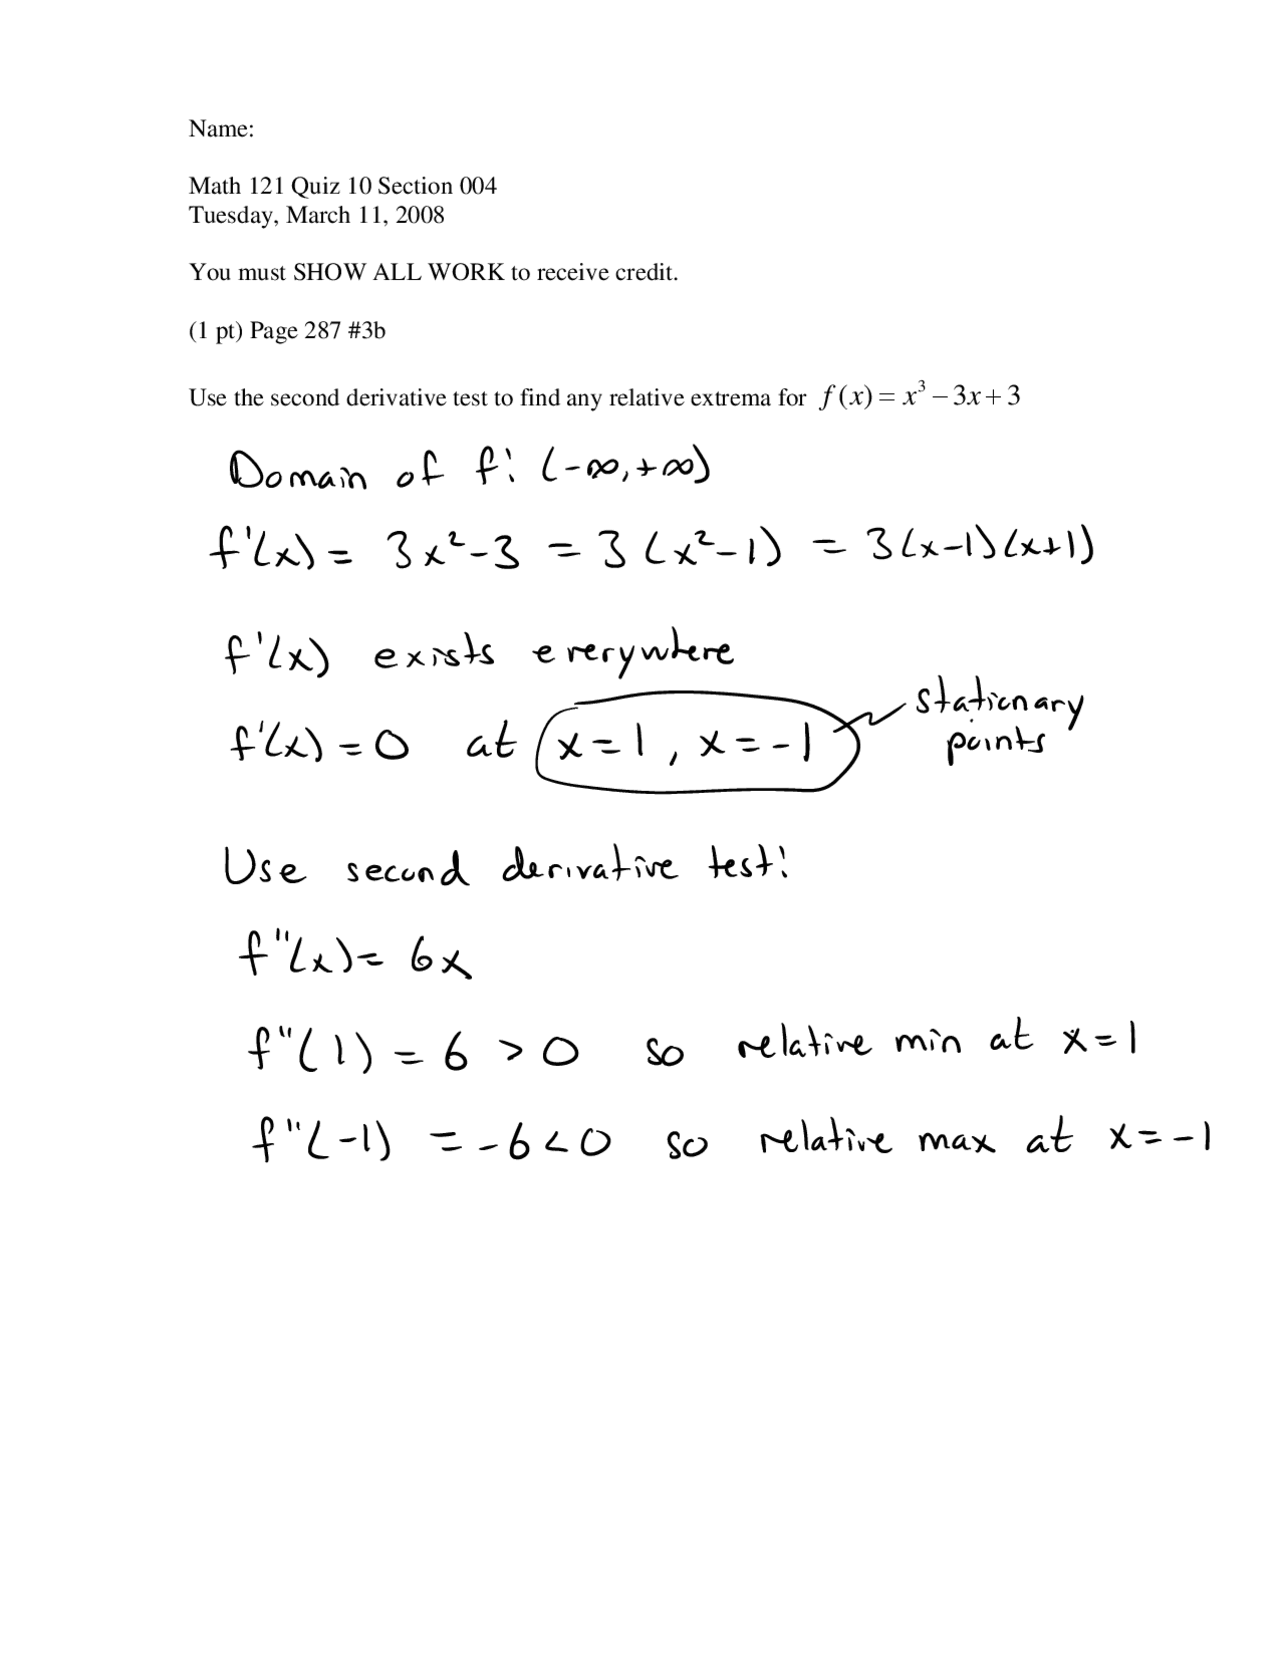 Name:
Math 121 Quiz 10 Section 004
Tuesday, March 11, 2008
You must SHOW ALL WORK to receive credit.
(1 pt) Page 287 #3b
Use the second derivative test to find any relative extrema for f(x) = x³ − 3x + 3
Domain of f: (-∞, +∞)
f'(x) = 3x² - 3 = 3(x² - 1) = 3(x-1)(x+1)
f'(x) exists everywhere
f'(x) = 0 at x = 1, x = -1
stationary
points
Use second derivative test:
f"(x) = 6x
f"(1) = 6 > 0 so relative min at x = 1
f"(-1) = -6 < 0 so relative max at x = -1